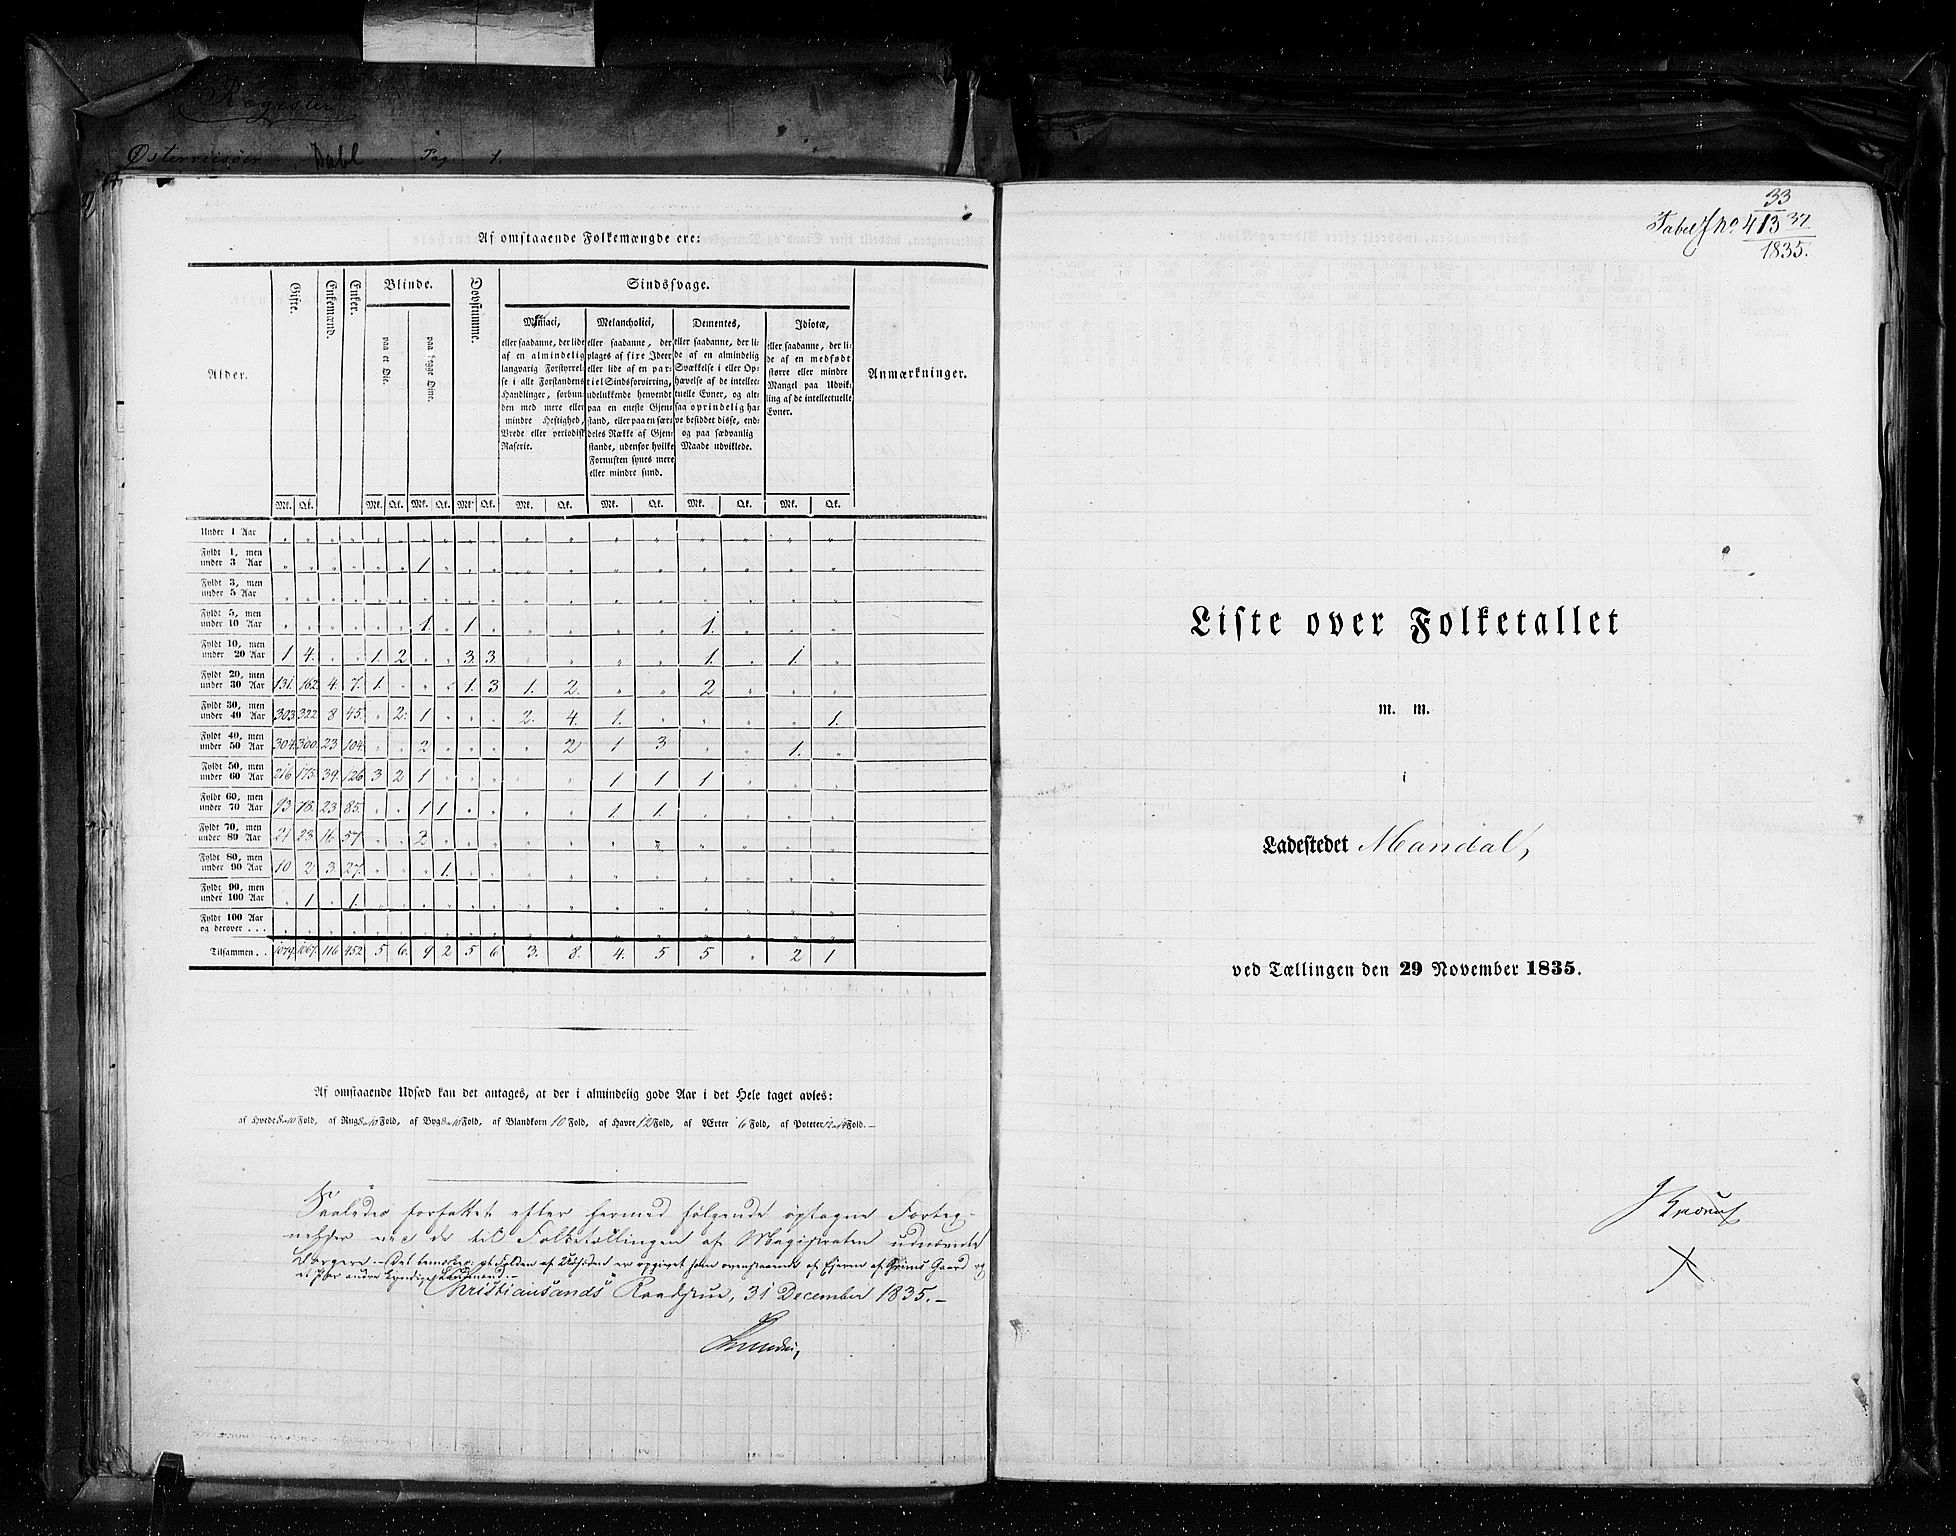 Register
Østerriisöer Tabl Pag. 1.
Af omstaaende Folkemængde ere:
Alder. Gifte. Enkemænd. Enker. Blinde. Døvstumme. Sindssvage. Anmærkninger.
paa et Øie. paa begge Øine.
Maniaci, Melancholici, Dementes, Idiotæ,
eller saadanne, der lide af en almindelig langvarig Forstyrrelse i alle Forstandens Handlinger, forbunden med mere eller mindre Heftighed, Vrede eller periodisk Raserie.
eller saadanne, der plages af fixe Ideer eller lide af en partiel Sindsforvirring, udelukkende henvendt paa en eneste Gjenstand, eller paa en særdeles Række af Gjenstande, udenfor hvilke Fornuften synes mere eller mindre sund.
eller saadanne, der lide af en almindelig Svækkelse i eller Ophævelse af de intellectuelle Evner, og altsaa oprindelig have besiddet disse, endog paa sædvanlig Maade udviklede.
eller saadanne, der lide af en medfødt større eller mindre Mangel paa Udvikling af de intellectuelle Evner.
Mk. Qk. Mk. Qk. Mk. Qk. Mk. Qk. Mk. Qk. Mk. Qk. Mk. Qk. Mk. Qk.
Under 1 Aar " " " " " " " " " " " " " " " " " "
Fyldt 1, men under 3 Aar " " " " " " 1 " " " " " " " " " " "
Fyldt 3, men under 5 Aar " " " " " " " " " " " " " " " " " "
Fyldt 5, men under 10 Aar " " " " " " 1. " 1 " " " " " 1. " " "
Fyldt 10, men under 20 Aar 1 4. " " 1. 2 " " 3. 3. " " " " 1. " 1. "
Fyldt 20, men under 30 Aar 131. 162. 4. 7. 1. " " " 1. 3 1. 2. " " 2 " " "
Fyldt 30, men under 40 Aar 303 322 8 45. " 2. 1 " " " 2. 4. 1. " " " " 1.
Fyldt 40, men under 50 Aar 304. 300. 23 104. " " 2 " " " " 2 1 3 " " 1. "
Fyldt 50, men under 60 Aar 216 175. 39. 126 3 2 1 " " " " " 1 1 1 " " "
Fyldt 60, men under 70 Aar 93. 78. 23 85. " " 1 1 " " " " 1. 1. " " " "
Fyldt 70, men under 80 Aar 21 23 16. 57. " " 2 " " " " " " " " " " "
Fyldt 80, men under 90 Aar 10 2 3. 27. " " " 1. " " " " " " " " " "
Fyldt 90, men under 100 Aar " 1 " 1. " " " " " " " " " " " " " "
Fyldt 100 Aar og derover . . . " " " " " " " " " " " " " " " " " "
Tilsammen . . 1079. 1067. 116 452 5 6. 9 2 5 6 3. 8. 4. 5 5 " 2 1
Af omstaaende Udsæd kan det antages, at der i almindelig gode Aar i det Hele taget avles:
af Hvede 8 a 10 Fold, af Rug 8 a 10 Fold, af Byg 8 a 10 Fold, af Blandkorn 10 Fold, af Havre 12 Fold, af Ærter 6 Fold, af Poteter 12 a 14 Fold.
Saaledes forfattet efter hermed følgende optagne Forteg-
nelser ved de til Folketællingen af Magistraten udnævnte
Borgere. - Det bemærkes: at Folden af Udsæden er opgivet som ovenstaaende af Eieren af Grims Gaard og
et Par andre kyndige Landmænd.-
Christiansands Raadstue, 31 December 1835.-
33
Tabel No 413 37
1835.
Liste over Folketallet
m. m.
i
Ladestedet Mandal,
ved Tællingen den 29 November 1835.